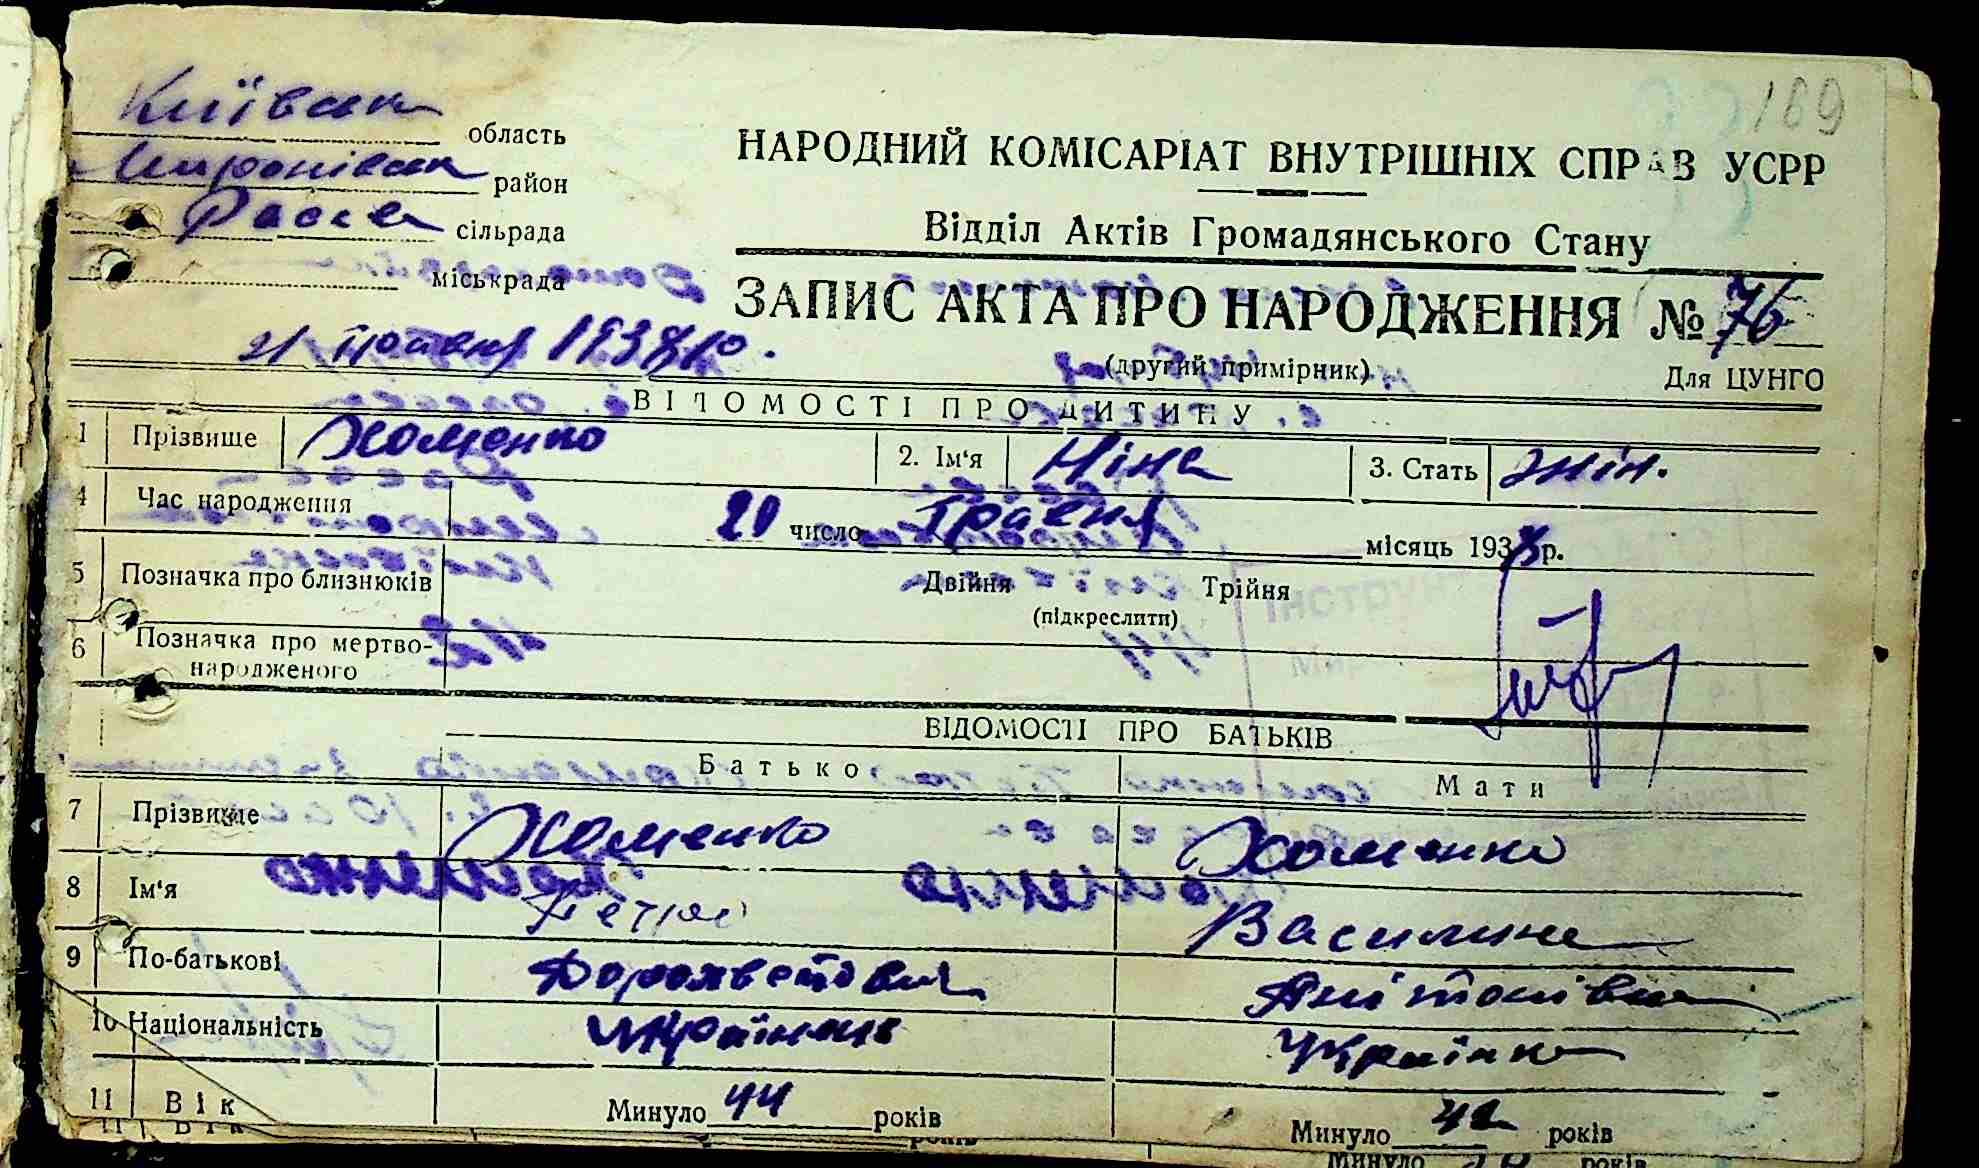 169
Київська область
Миронівськ район
Росава сільрада
міськрада
НАРОДНИЙ КОМІСАРІАТ ВНУТРІШНІХ СПРАВ УСРР
Відділ Актів Громадянського Стану
ЗАПИС АКТА ПРО НАРОДЖЕННЯ № 76
(другий примірник)
Для ЦУНГО
21 193
ВІДОМОСТІ ПРО ДИТИНУ
1 Прізвище Хоменко 2. Ім'я Ніна 3. Стать жін.
4 Час народження 20 число Травня місяць 193 р.
5 Позначка про близнюків Двійня Трійня
(підкреслити)
6 Позначка про мертво-
народженого
ВІДОМОСТІ ПРО БАТЬКІВ
Батько Мати
7 Прізвище Хоменко Хоменко
8 Ім'я Петро Василина
9 По-батькові
10 Національність Українець Українка
11 Вік Минуло 44 років Минуло 42 років